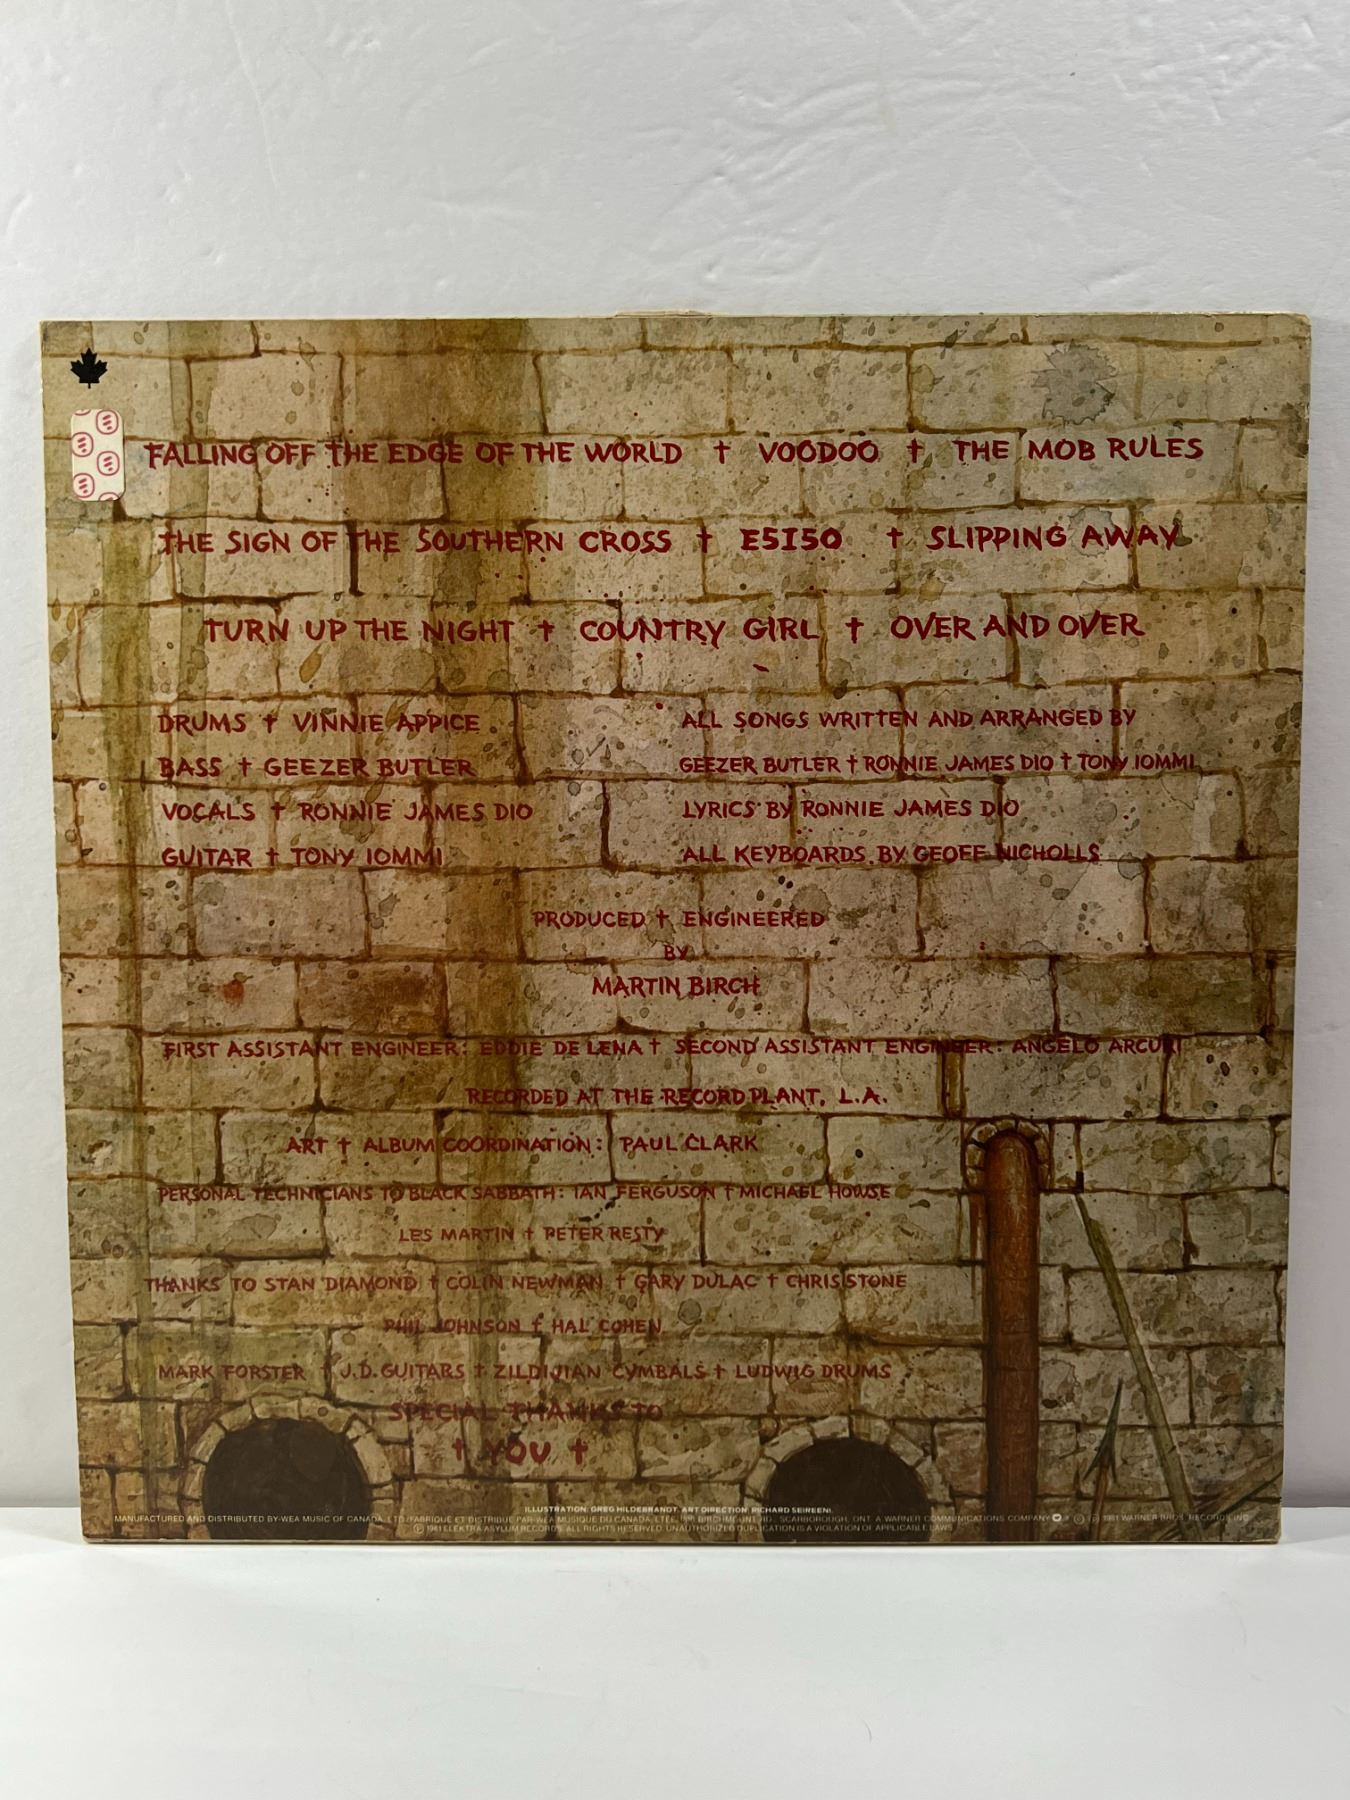 FALLING OFF THE EDGE OF THE WORLD † VOODOO † THE MOB RULES
THE SIGN OF THE SOUTHERN CROSS † E5150 † SLIPPING AWAY
TURN UP THE NIGHT † COUNTRY GIRL † OVER AND OVER
DRUMS † VINNIE APPICE
BASS † GEEZER BUTLER
VOCALS † RONNIE JAMES DIO
GUITAR † TONY IOMMI
ALL SONGS WRITTEN AND ARRANGED BY
GEEZER BUTLER † RONNIE JAMES DIO † TONY IOMMI
LYRICS BY RONNIE JAMES DIO
ALL KEYBOARDS BY GEOFF NICHOLLS
PRODUCED † ENGINEERED
BY
MARTIN BIRCH
FIRST ASSISTANT ENGINEER: EDDIE DE LENA † SECOND ASSISTANT ENGINEER: ANGELO ARCURI
RECORDED AT THE RECORD PLANT, L.A.
ART † ALBUM COORDINATION: PAUL CLARK
PERSONAL TECHNICIANS TO BLACK SABBATH: IAN FERGUSON † MICHAEL HOWSE
LES MARTIN † PETER RESTY
THANKS TO STAN DIAMOND † COLIN NEWMAN † GARY DULAC † CHRIS STONE
PHIL JOHNSON † HAL COHEN
MARK FORSTER † J.D. GUITARS † ZILDIJIAN CYMBALS † LUDWIG DRUMS
SPECIAL THANKS TO
† YOU †
ILLUSTRATION: GREG HILDEBRANDT. ART DIRECTION: RICHARD SEIREENI.
MANUFACTURED AND DISTRIBUTED BY-WEA MUSIC OF CANADA, LTD./FABRIQUÉ ET DISTRIBUÉ PAR-WEA MUSIQUE DU CANADA, LTÉE, BIRCHMOUNT RD., SCARBOROUGH, ONT. A WARNER COMMUNICATIONS COMPANY © ℗ 1981 WARNER BROS. RECORDS INC.
℗ 1981 ELEKTRA ASYLUM RECORDS. ALL RIGHTS RESERVED. UNAUTHORIZED DUPLICATION IS A VIOLATION OF APPLICABLE LAWS